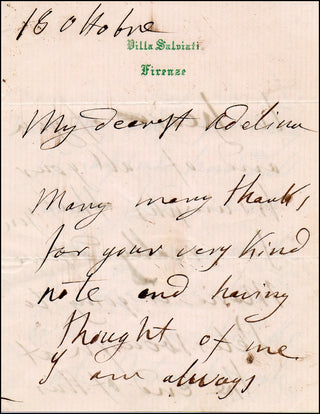 18 Ottobre
Villa Salviati
Firenze
My dearest Adelina
Many many thanks
for your very kind
note and having
thought of me
I am always